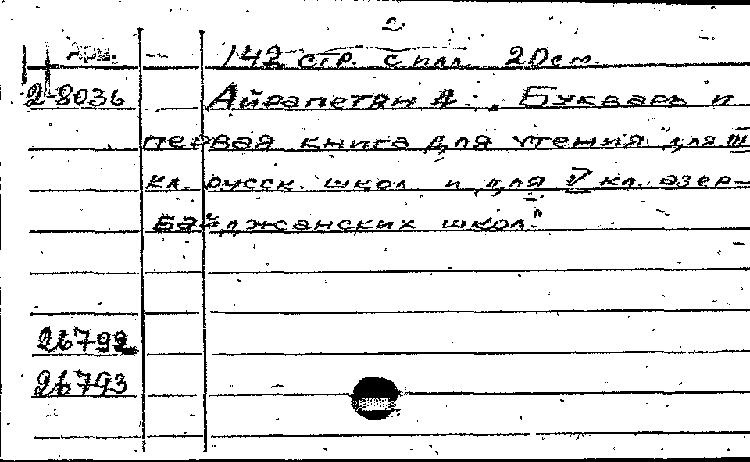 2
Арм. — 142 стр. с илл. 20 см.
2-8036 Айрапетян А. „Букварь и
первая книга для чтения для III
кл. русск. школ и для V кл. азер-
байджанских школ."
26792
26793